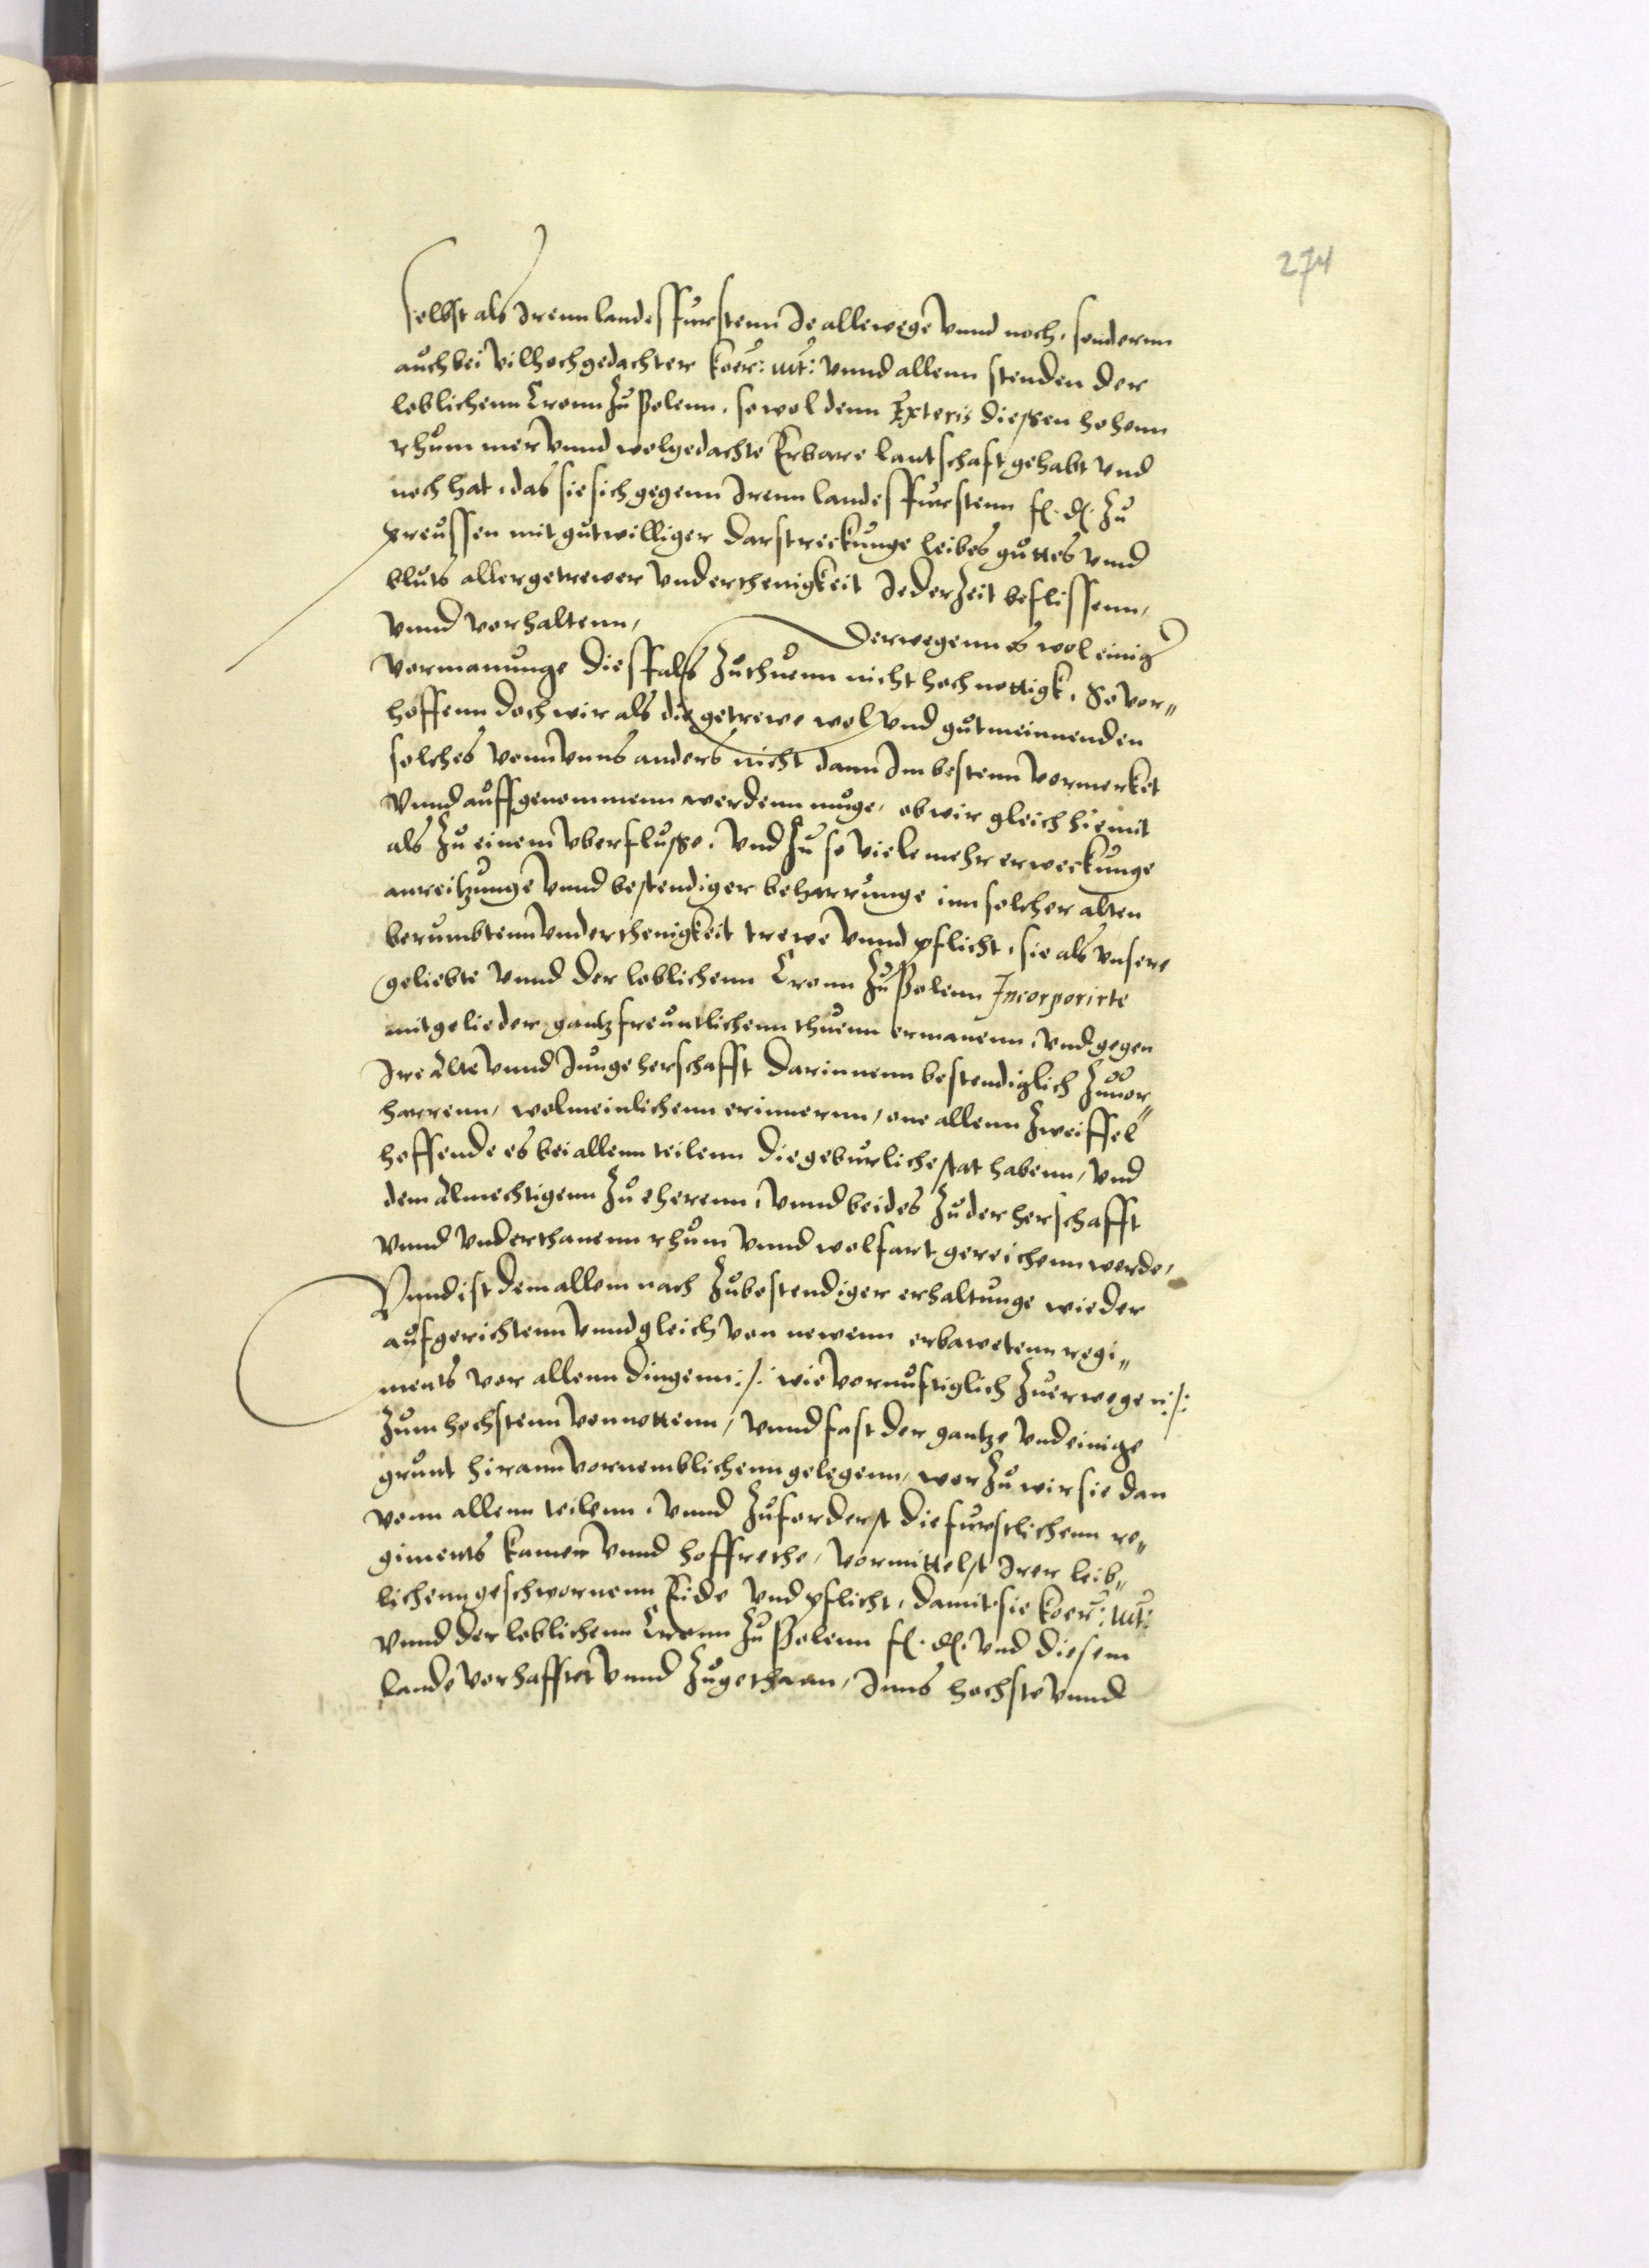 274
selbst als Irenn landesffurstenn Ie allewege vnnd noch, sondernn
auch bei vilhochgedachter koer: mt: vnnd allenn stenden der
loblichenn Cronn zu Polenn, sowol denn Exteris diessen hohenn
rhum mer vnnd wolgedachte Erbare lantschaft gehabt vnd
noch hat, das sie sich gegenn Irenn landesffurstenn f. d. zu
Preussen mit gutwilliger darstreckunge leibes guttes vnnd
bluts aller getrewer vnderthenigkeit Iederzeit beflissenn,
vnnd vorhaltenn,
Derwegenn es wol einig
vormanunge diesfals zuthuenn nicht hoch nottigk, So vor„
hoffenn doch wir als die getrewe wol vnd gutmeinnenden
solches vonn vnns anders nicht dann Im bestenn vormerket
vnnd auffgenommenn werdenn muge, ob wir gleich hiemit
als zu einem vberflusse, vnd zu so viele mehr erweckunge
anreitzunge vnnd bestendiger beharrunge inn solcher alten
berumbtenn vnderthenigkeit trewe vnnd pflicht, sie als vnsere
geliebte vnnd der loblichenn Cronn zu Polenn Incorporirte
mitgelieder gantz freuntlichenn thuenn ermanenn, vnd gegen
Ire alte vnnd Iunge herschafft darinnenn bestendiglich zuuor„
harrenn, wolmeinlichenn erinnernn, one allenn zweiffel
hoffende es bei allenn teilenn die geburliche stat habenn, vnd
dem almechtigenn zu eherenn, vnnd beides zu der herschafft
vnnd vnderthanenn rhum vnnd wolfart gereichenn werde,
Vnnd ist dem allem nach zu bestendiger erhaltunge wieder
aufgerichtenn vnnd gleich von newenn erbawetenn regi„
ments vor allenn dingenn :/: wie vornuftiglich zuerwegen :/:
zum hochstenn vonnottenn, vnnd fast der gantze vnd einige
grunt hirann vornemblichenn gelegenn, worzu wir sie dan
vonn allenn teilenn, vnnd zuforderst die furstlichenn re„
giments kamer vnnd hoffrethe, vormittelst Irer leib„
lichenn geschwornenn Eide vnd pflicht, damit sie koer: mt:
vnnd der loblichenn Cronn zu Polenn f. d. vnd diesem
lande vorhafftet vnnd zugethaan, Inns hochste vnnd